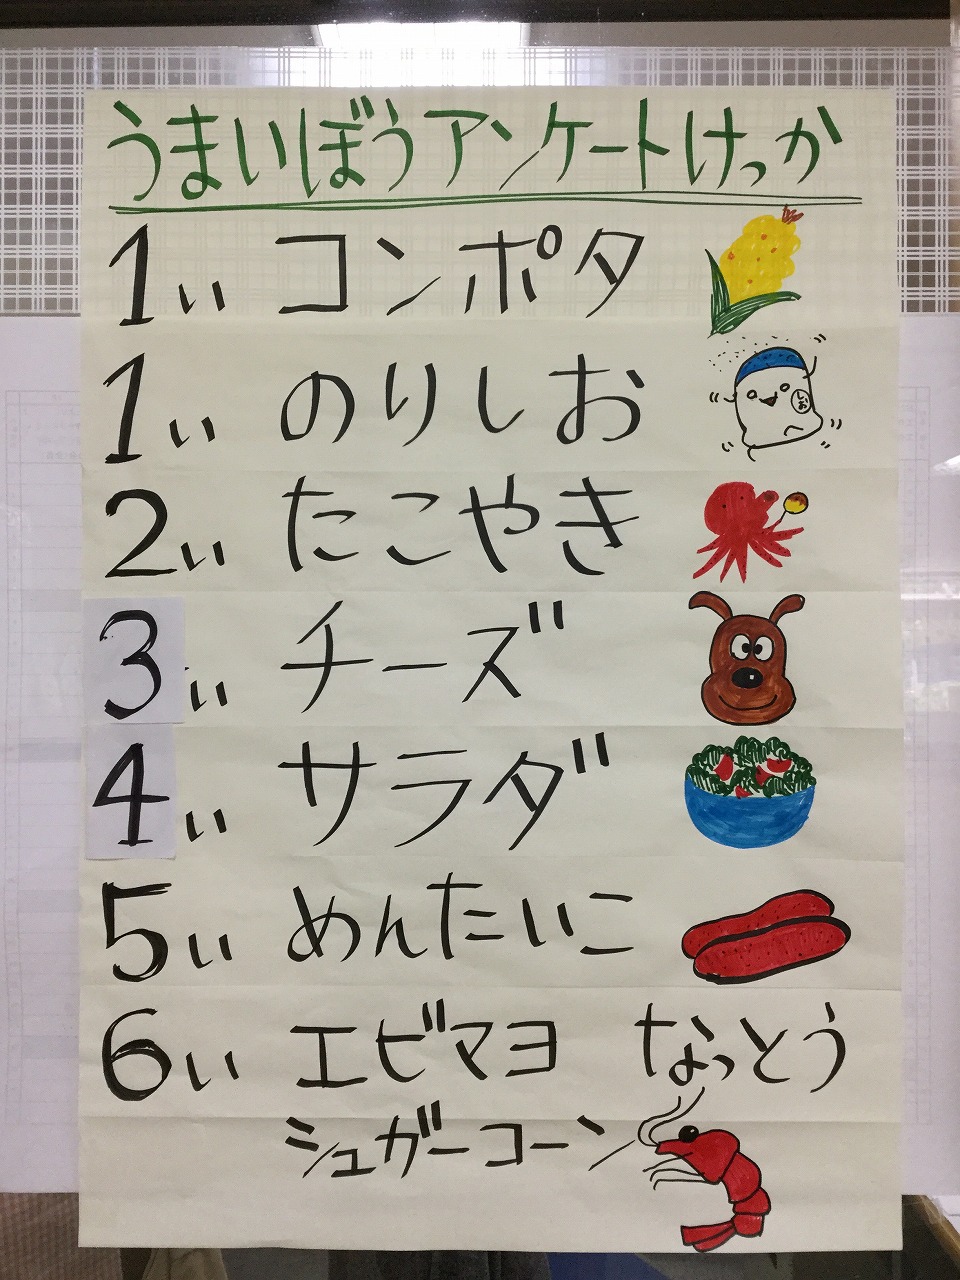 うまいぼうアンケートけっか
1い コンポタ
1い のりしお
しお
2い たこやき
3い チーズ
4い サラダ
5い めんたいこ
6い エビマヨ なっとう
シュガーコーン